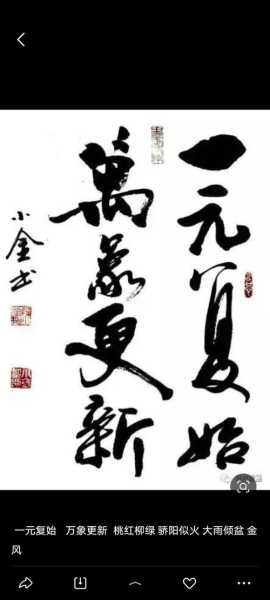 一元复始
萬象更新
小金书
一元复始 万象更新 桃红柳绿 骄阳似火 大雨倾盆 金
风